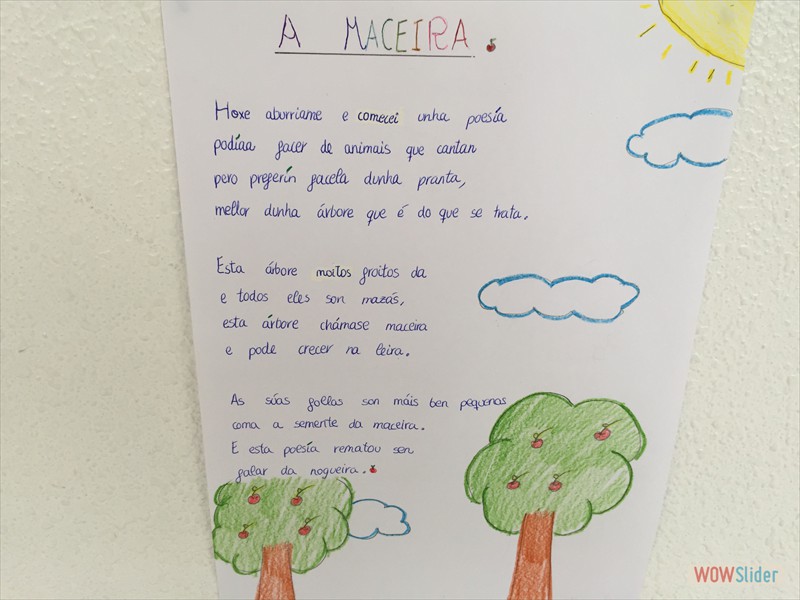 A MACEIRA.
Hoxe aburríame e comecei unha poesía
podíaa facer de animais que cantan
pero preferín facela dunha pranta,
mellor dunha árbore que é do que se trata.
Esta árbore moitos froitos da
e todos eles son mazás,
esta árbore chámase maceira
e pode crecer na leira.
As súas follas son máis ben pequenas
coma a semente da maceira.
E esta poesía rematou sen
falar da nogueira.
WOWSlider